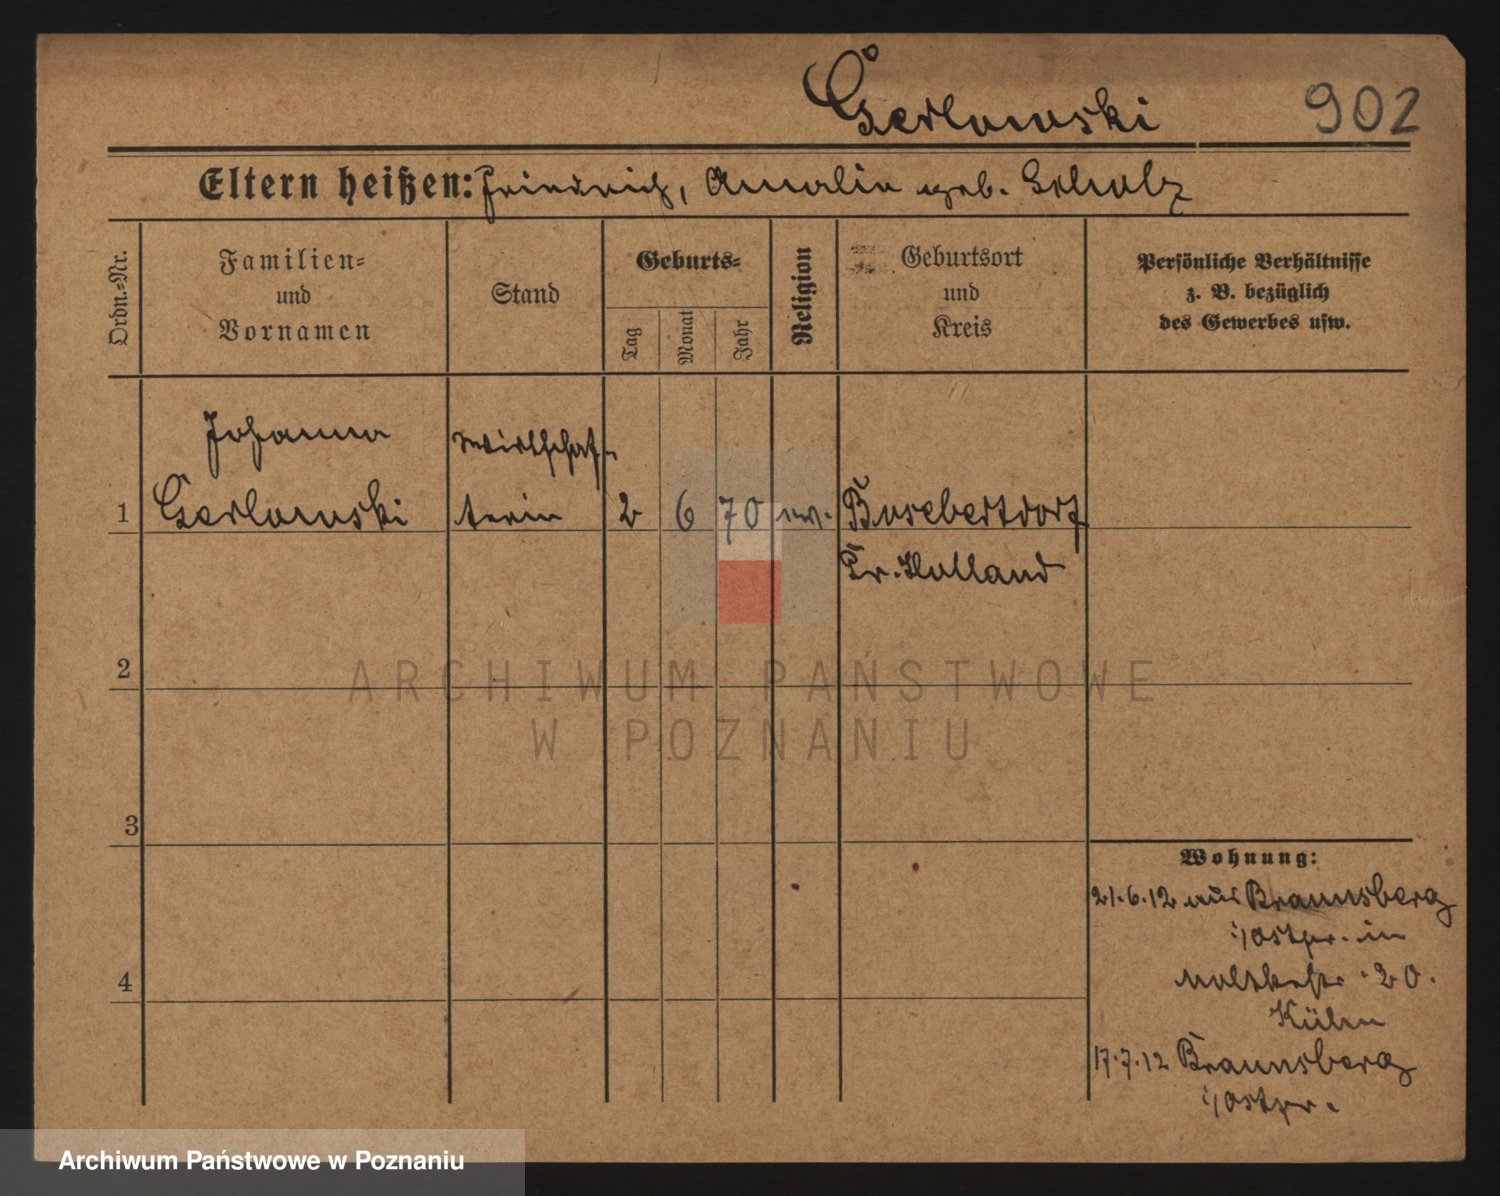 Gerlowski 902
Eltern heißen: Friedrich, Amalie geb. Scholz
Ordn.-Nr.
Familien-
und
Vornamen
Stand
Geburts-
Tag
Monat
Jahr
Religion
Geburtsort
und
Kreis
Persönliche Verhältnisse
z. B. bezüglich
des Gewerbes usw.
Johanna Wirtschaf-
1 Gerlowski terin 2 6 70 ev.
Pr. Holland
2
3
4
Wohnung:
21.6.12 aus Braunsberg
i/Ostpr. in
Moltkestr. 20.
17.7.12 Braunsberg
i/Ostpr.
ARCHIWUM PAŃSTWOWE
W POZNANIU
Archiwum Państwowe w Poznaniu